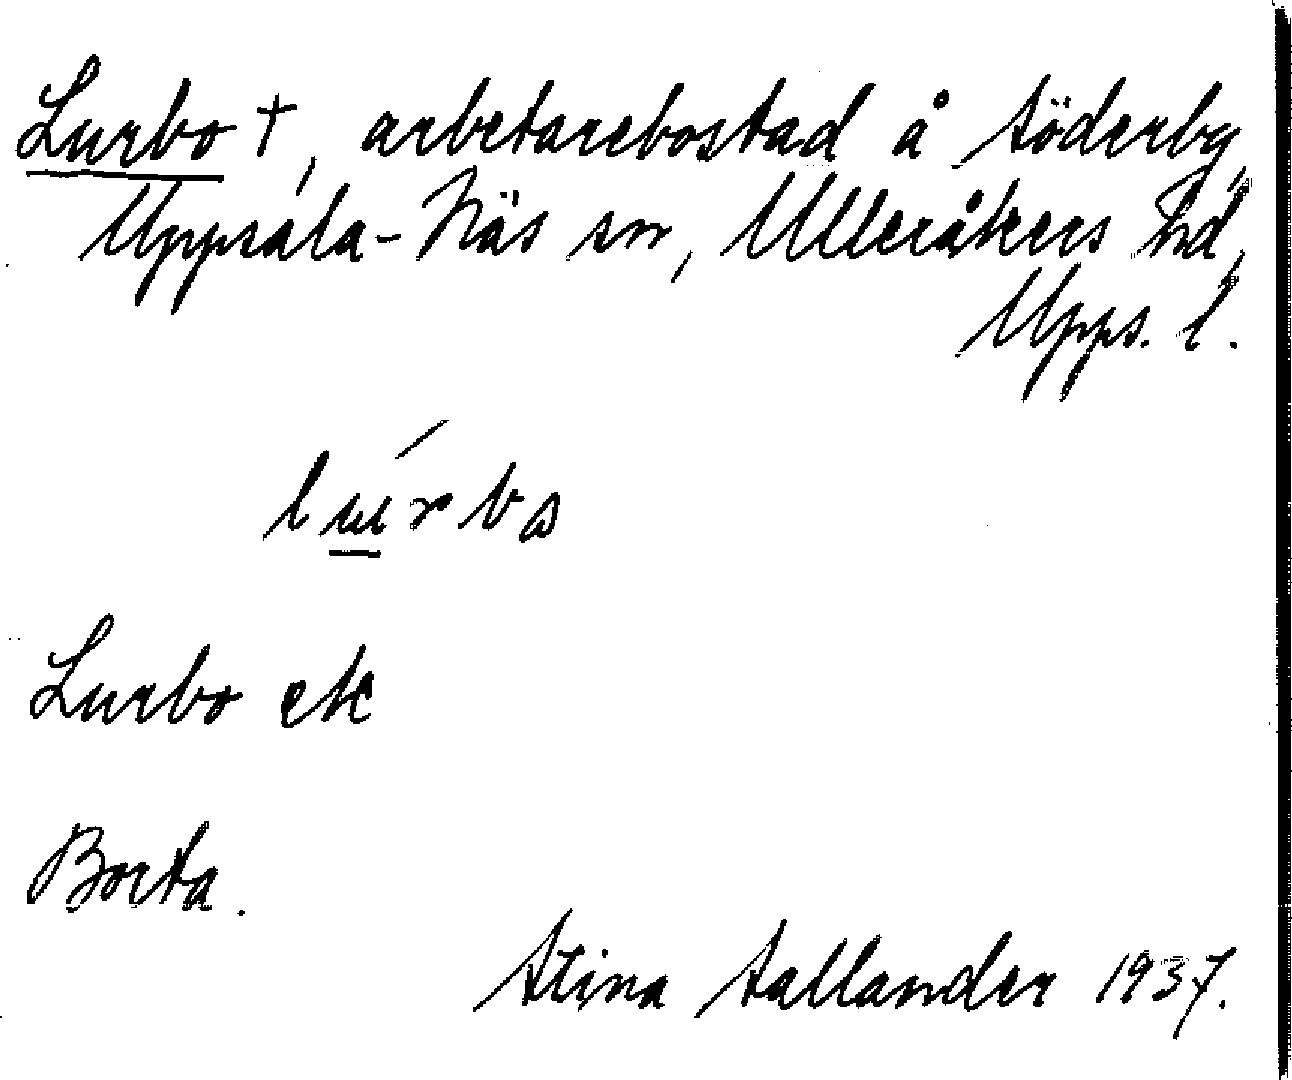 Lurbo †, arbetarebostad å Söderby,
Uppsala-Näs sn, Ulleråkers hd,
Upps. l.
Lurbo ek
Borta.
Stina Sallander 1937.